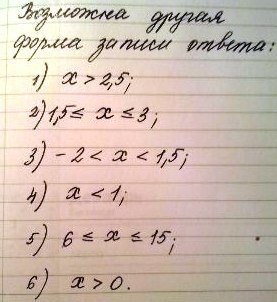 Возможна другая
форма записи ответа:
1) x > 2,5;
2) 1,5 ≤ x ≤ 3;
3) - 2 < x < 1,5;
4) x < 1;
5) 6 ≤ x ≤ 15;
6) x > 0.